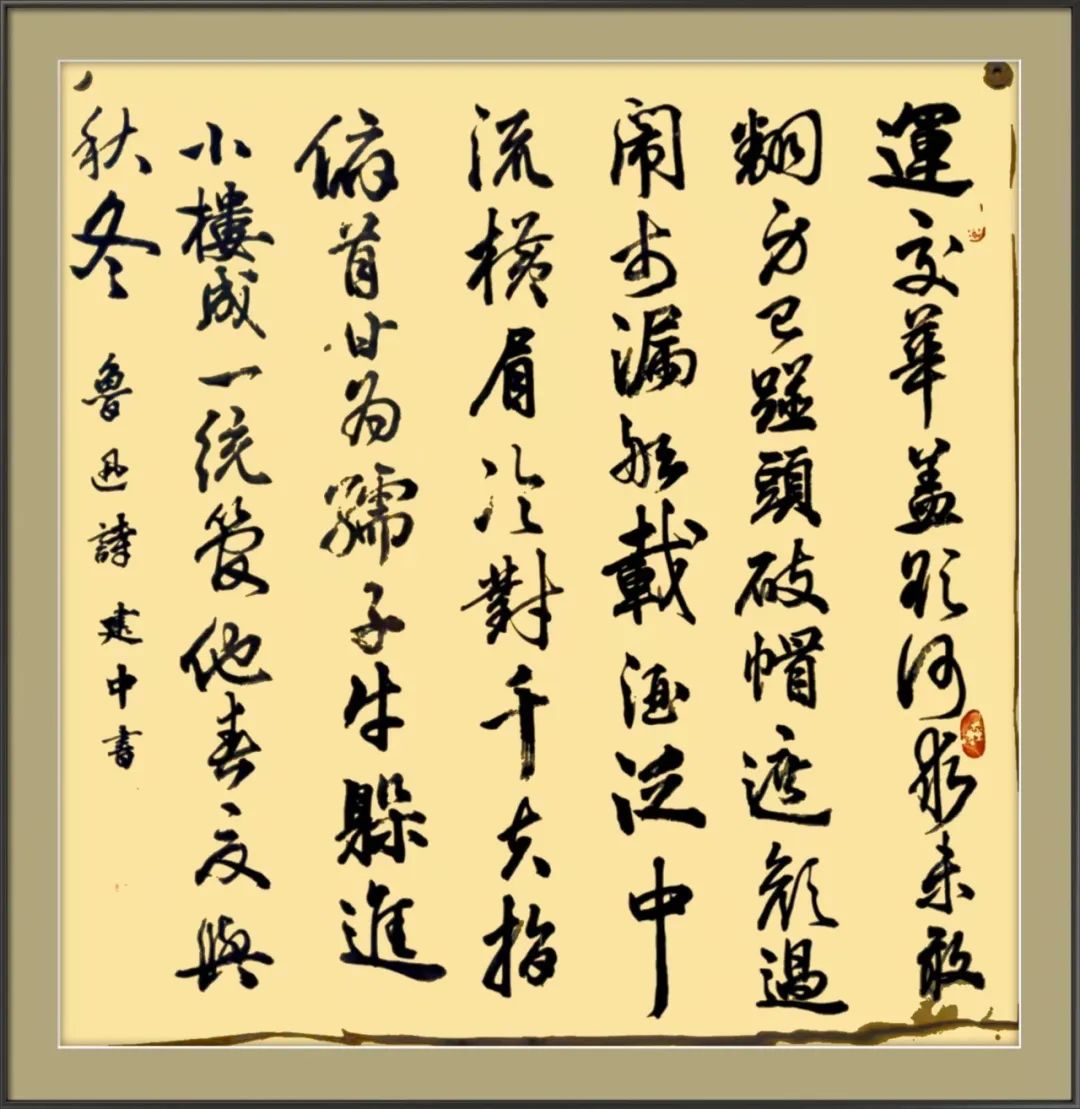 運交華盖欲何求未敢
翻身已踫頭破帽遮颜過
闹市漏船載酒泛中
流横眉冷對千夫指
俯首甘为孺子牛躲進
小樓成一統管他春夏與
秋冬 魯迅詩 建中書